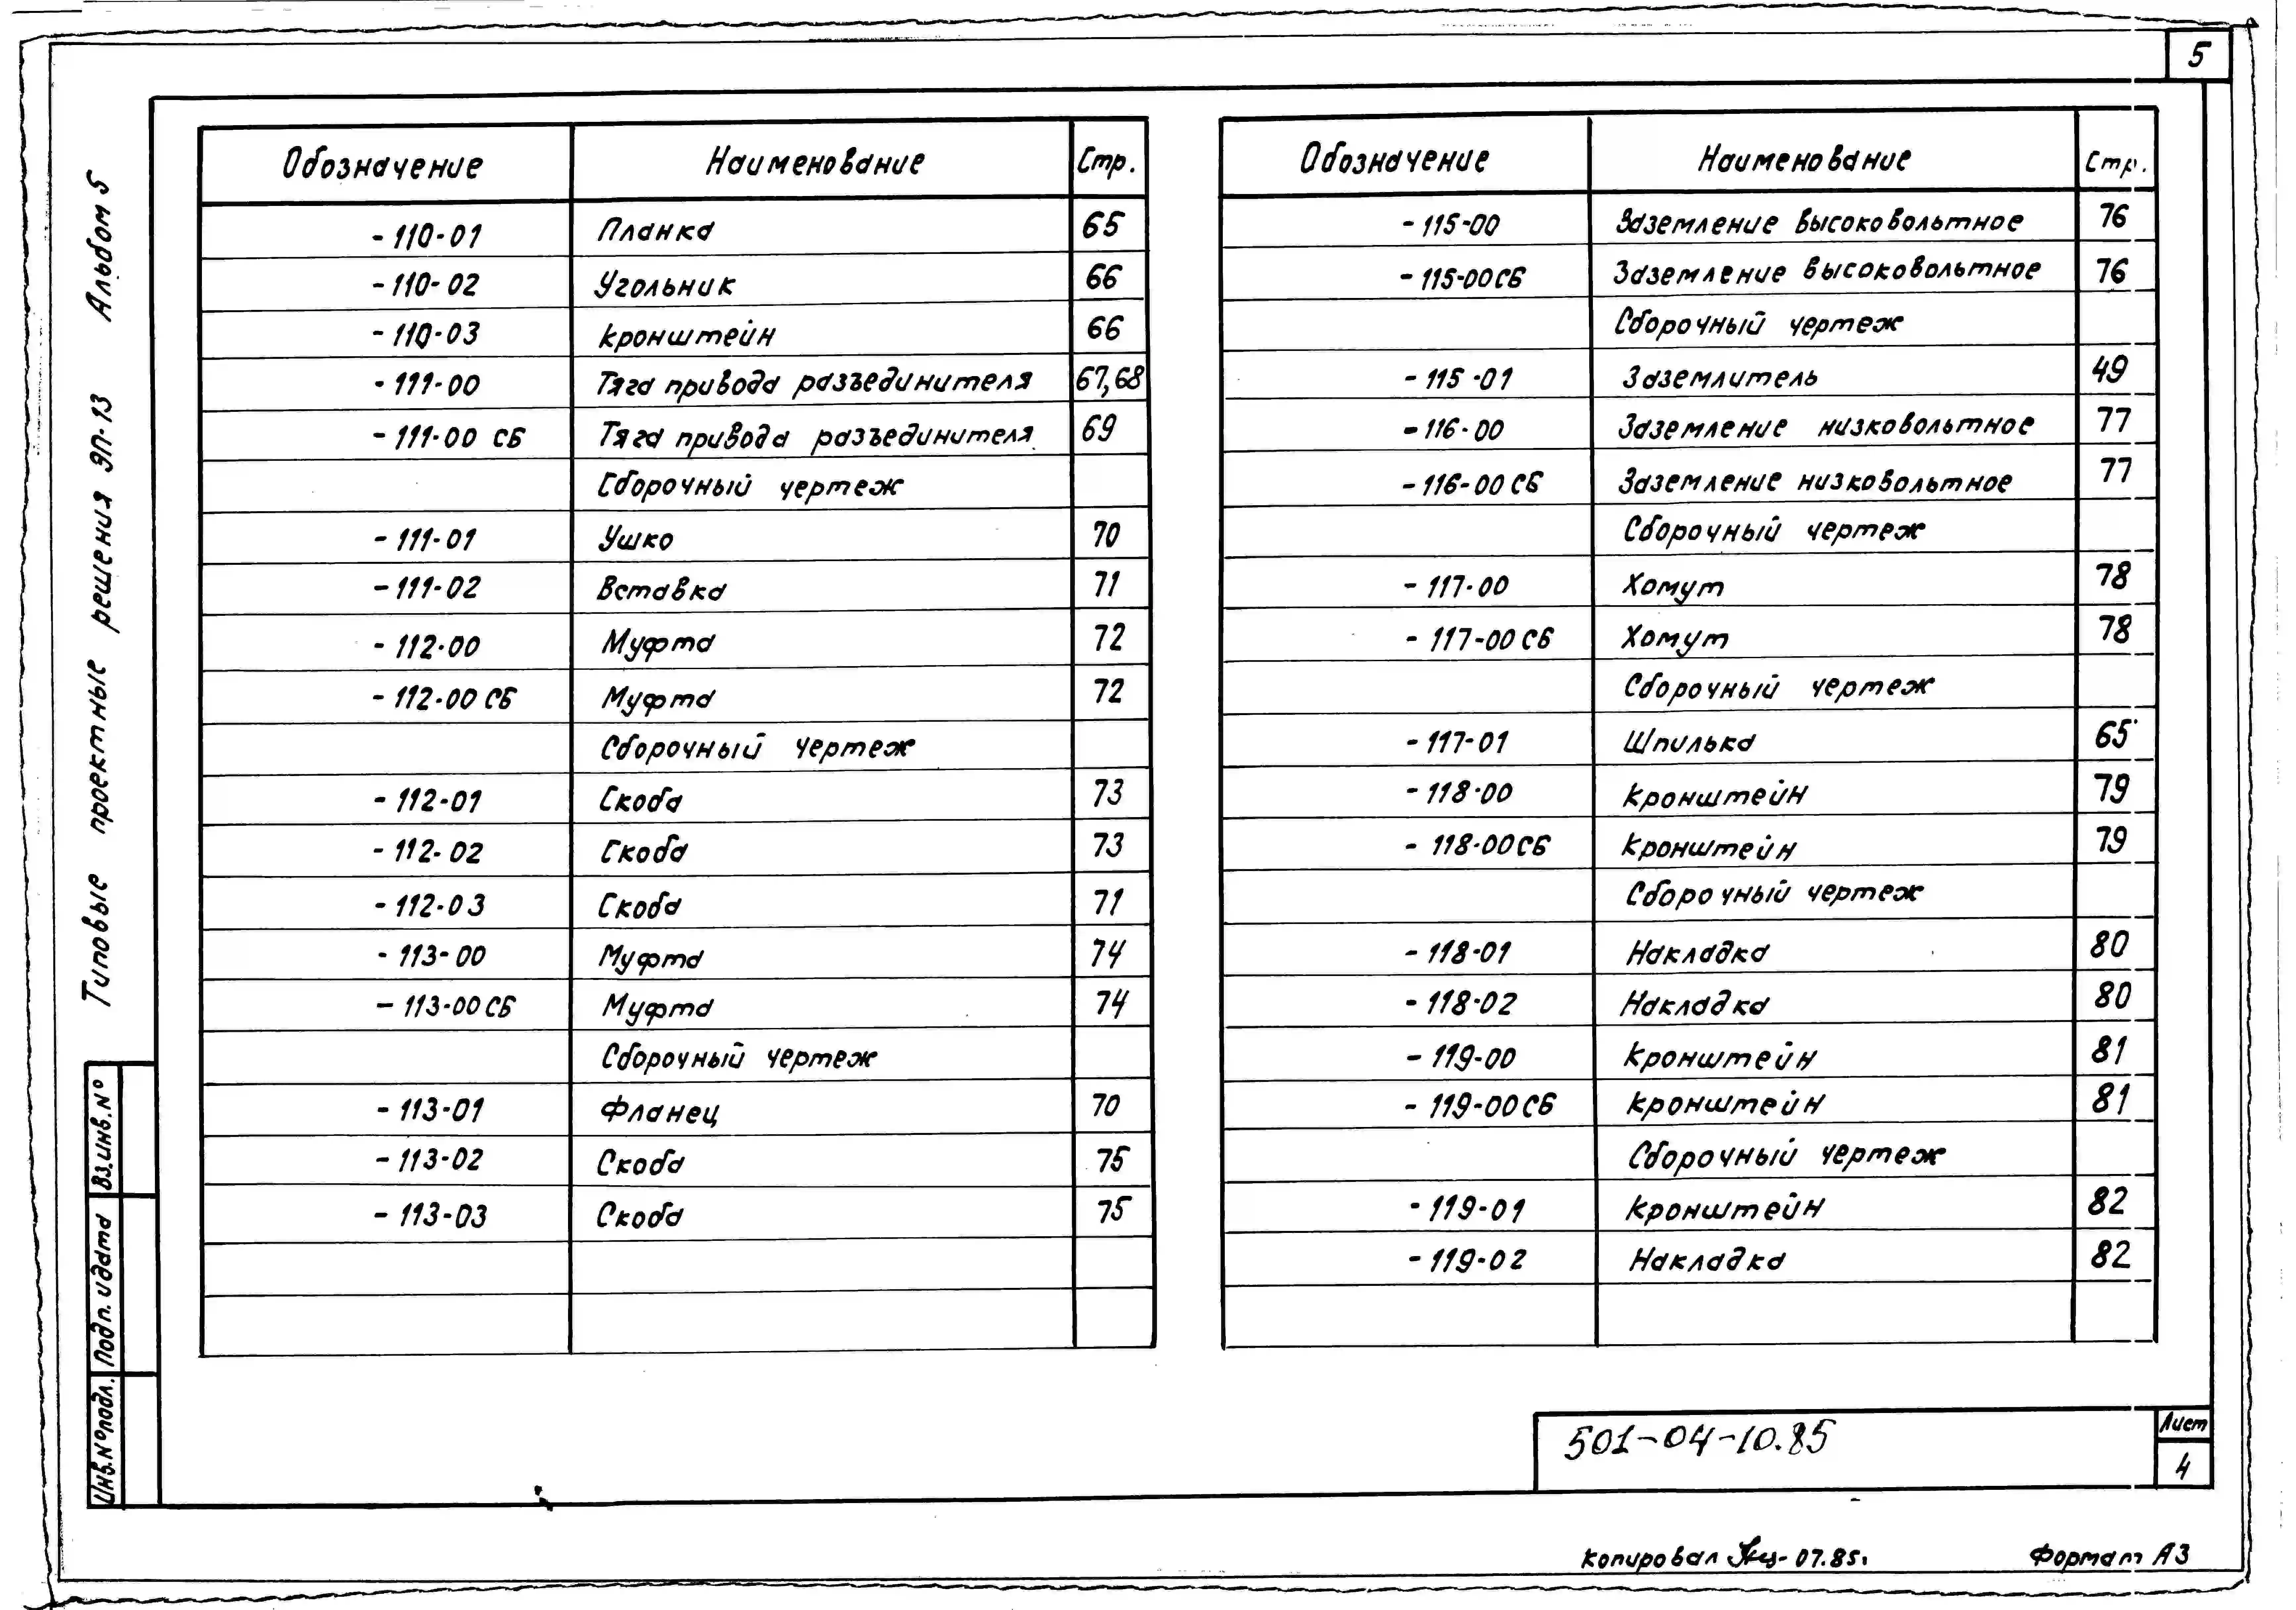 5
Альбом 5
Типовые проектные решения ЭП-13
Обозначение Наименование Стр.
-110-01 Планка 65
-110-02 Угольник 66
-110-03 Кронштейн 66
-111-00 Тяга привода разъединителя 67,68
-111-00 СБ Тяга привода разъединителя 69
Сборочный чертеж
-111-01 Ушко 70
-111-02 Вставка 71
-112-00 Муфта 72
-112-00 СБ Муфта 72
Сборочный чертеж
-112-01 Скоба 73
-112-02 Скоба 73
-112-03 Скоба 71
-113-00 Муфта 74
-113-00 СБ Муфта 74
Сборочный чертеж
-113-01 Фланец 70
-113-02 Скоба 75
-113-03 Скоба 75
Обозначение Наименование Стр.
-115-00 Заземление высоковольтное 76
-115-00СБ Заземление высоковольтное 76
Сборочный чертеж
-115-01 Заземлитель 49
-116-00 Заземление низковольтное 77
-116-00 СБ Заземление низковольтное 77
Сборочный чертеж
-117-00 Хомут 78
-117-00 СБ Хомут 78
Сборочный чертеж
-117-01 Шпилька 65
-118-00 Кронштейн 79
-118-00СБ Кронштейн 79
Сборочный чертеж
-118-01 Накладка 80
-118-02 Накладка 80
-119-00 Кронштейн 81
-119-00СБ Кронштейн 81
Сборочный чертеж
-119-01 Кронштейн 82
-119-02 Накладка 82
Вз.инв.№
Подп. и дата
Инв.№подл.
501-04-10.85
Лист
4
Копировал 07.85г.
Формат А3